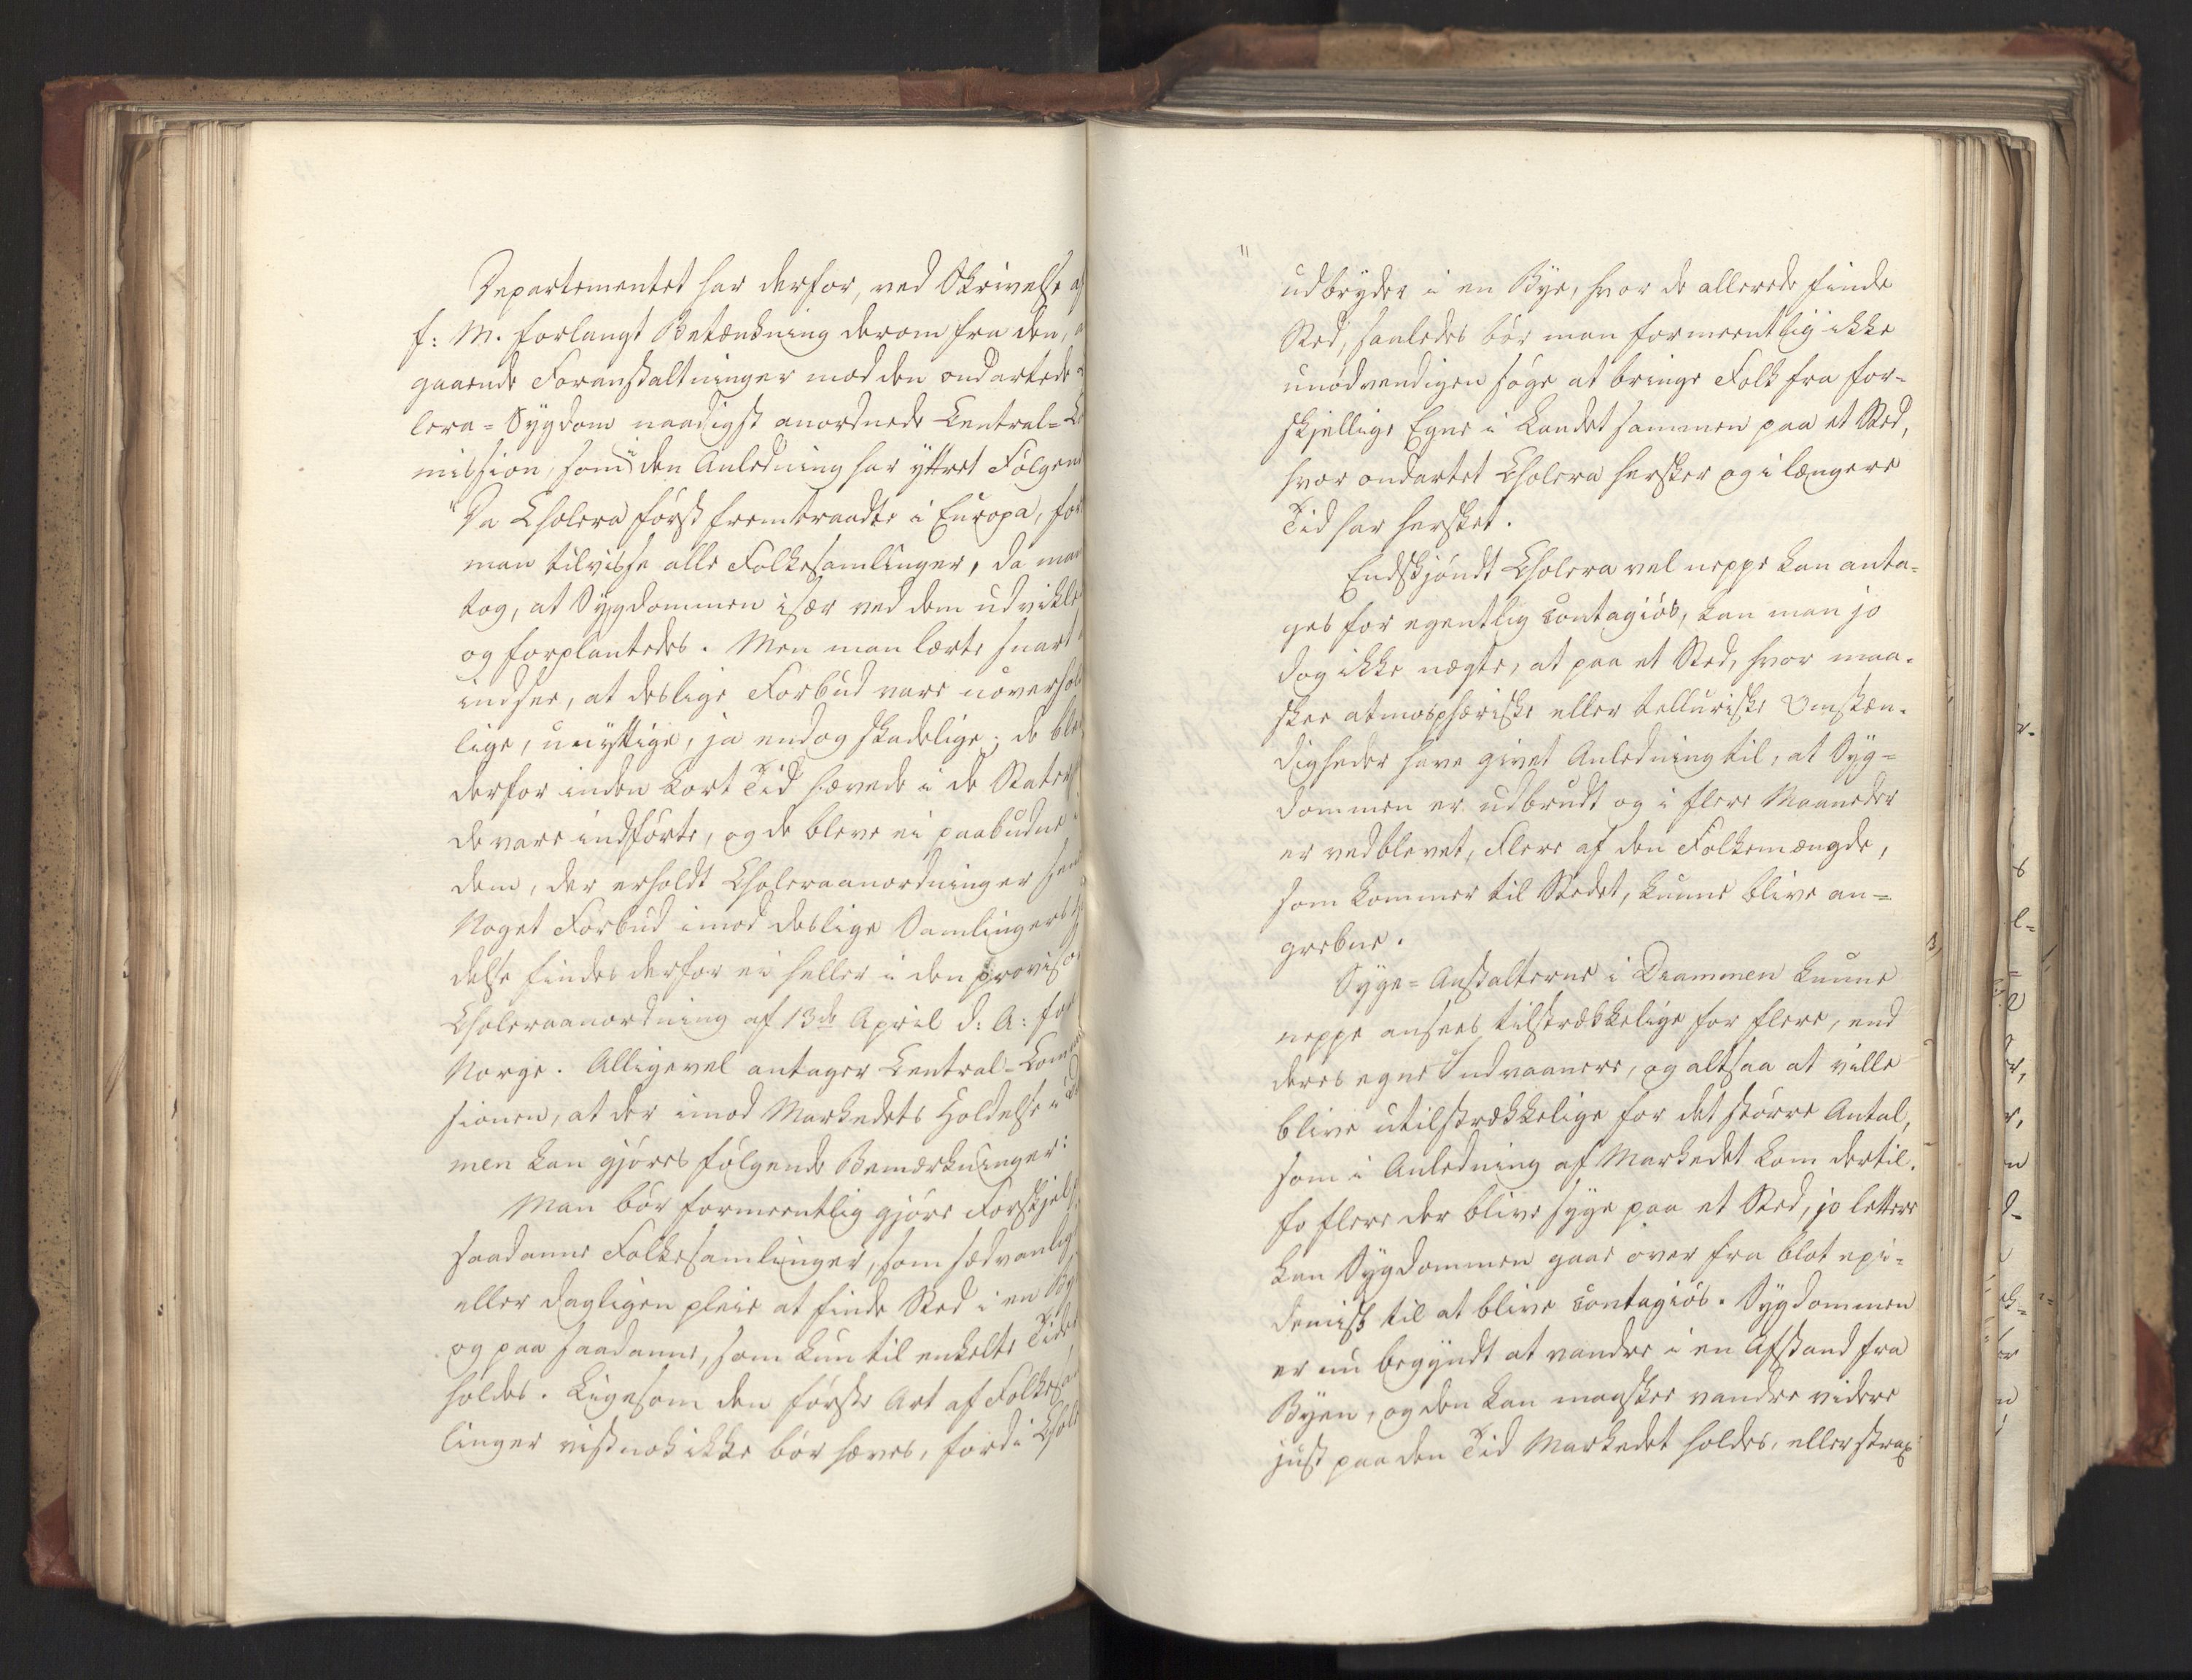 Departementet har derfor, ved Skrivelse af
f: M. forlangt Betænkning derom fra den, a
gaaende Foranstaltninger mod den ondartede
lera-Sygdom naadigst anordnede Central-Co
mission, som i den Anledning har yttret Følgend
"Da Cholera først fremtraadte i Europa, for
man tilvisse alle Folkesamlinger, da man
tog, at Sygdommen især ved dem udvikle
og forplantedes. Men man lærte snart
indsee, at deslige Forbud vare uoverhol
lige, unyttige, ja endog skadelige; de ble
derfor inden kort Tid hævede i de Stater
de vare indførte, og de bleve ei paabudne i
dem, der erholdt Choleraanordninger sen
Noget Forbud imod deslige Samlingers
delse findes derfor ei heller i den provis
Choleraanordning af 13de April d: A: for
Norge. Alligevel antager Central-Com
sionen, at der imod Markedets Holdelse i
men kan gjøres følgende Bemærkninger:
Man bør formeentlig gjøre Forskjel
saadanne Folkesamlinger, som sædvanlig
eller dagligen pleie at finde Sted i en By
og paa saadanne, som kun til enkelte Tider
holdes. Ligesom den første Art af Folkesa
linger vistnok ikke bør hæves, fordi Chole
" udbryder i en Bye, hvor de allerede finde
Sted, saaledes bør man formeentlig ikke
unødvendigen søge at bringe Folk fra for-
skjellige Egne i Landet sammen paa et Sted,
hvor ondartet Cholera hersker og i længere
Tid har hersket.
Endskjøndt Cholera vel neppe kan anta-
ges for egentlig contagiøs, kan man jo
dog ikke negte, at paa et Sted, hvor maa-
skee atmosphæriske eller telluriske Omstæn-
digheder have givet Anledning til, at Syg-
dommen er udbrudt og i flere Maaneder
er vedblevet, Flere af den Folkemængde,
som kommer til Stedet, kunne blive an-
grebne.
Syge-Anstalterne i Drammen kunne
neppe ansees tilstrækkelige for flere, end
deres egne Indvaanere, og altsaa at ville
blive utilstrækkelige for det større Antal,
som i Anledning af Markedet kom dertil.
Jo flere der blive syge paa et Sted, jo lettere
kan Sygdommen gaae over fra blot epi-
demisk til at blive contagiøs. Sygdommen
er nu begyndt at vandre i en Afstand fra
Byen, og den kan maaskee vandre videre
just paa den Tid Markedet holdes, eller strax